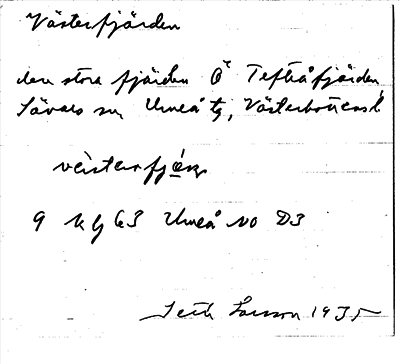 Västerfjärden
den stora fjärden Ö Tefteåfjärden
Sävars sn Umeå tg, Västerbottens l
västerfjäṇ
9 Kg 63 Umeå NO D3
Seth Larsson 1935